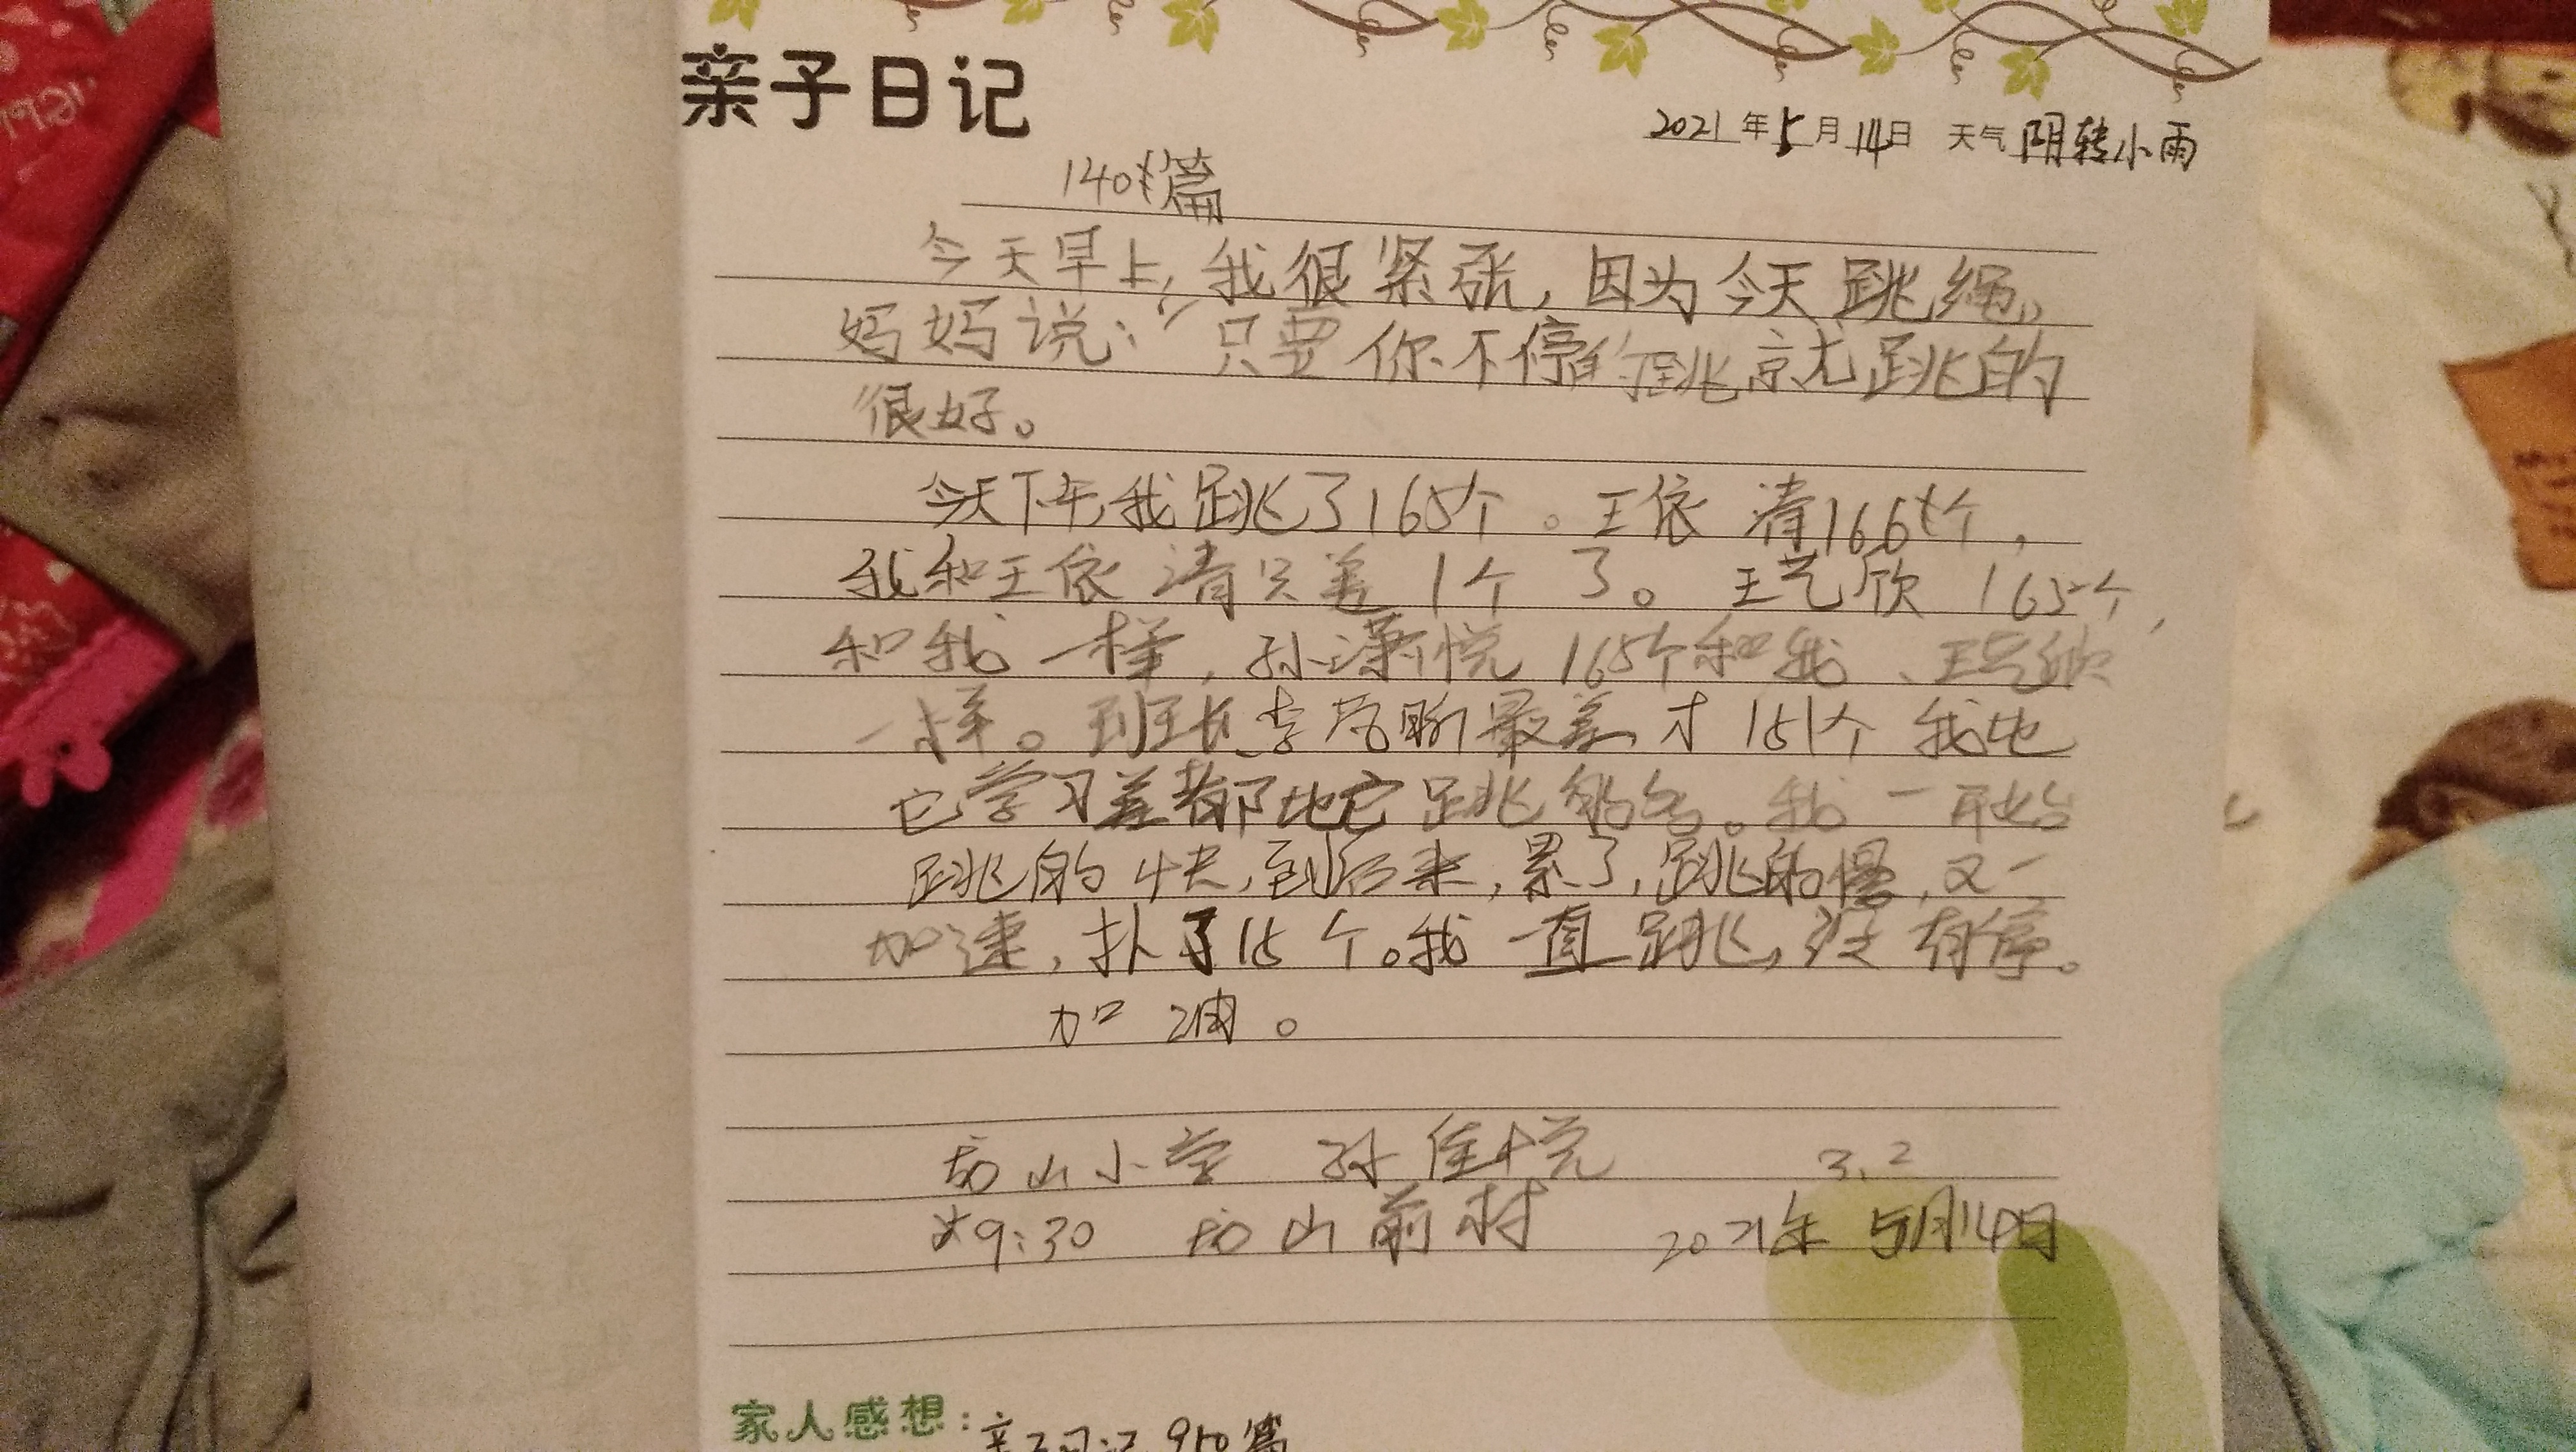 亲子日记
2021年5月14日 天气 阴转小雨
140篇
今天早上,我很紧张,因为今天跳绳。
妈妈说:“只要你不停的跳就跳的
很好。
今天下午,我跳了165个。王依清166个,
我和王依清只差1个了。王艺欣165个,
和我一样,孙潇悦165个和我、王艺欣
一样。班长李 最差才151个 我比
它学习差都比它跳的多。我一开始
跳的快,到后来,累了,跳的慢,又一
加速,扑了15个。我一直跳,没有停。
加油。
山小学 孙佳悦 3.2
9:30 山前村 2021年5月14日
家人感想:亲子日记950篇